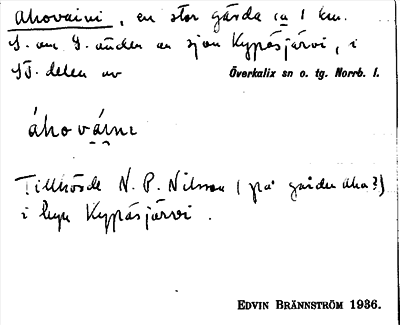 Ahovaini, en stor gärda ca 1 km.
S. om S. änden av sjön Kypäsjärvi, i
SÖ. delen av Överkalix sn o. tg. Norrb. l.
áhováìnı
Tillhörde N. P. Nilsson (på gården Aha?)
i byn Kypäsjärvi.
EDVIN BRÄNNSTRÖM 1936.